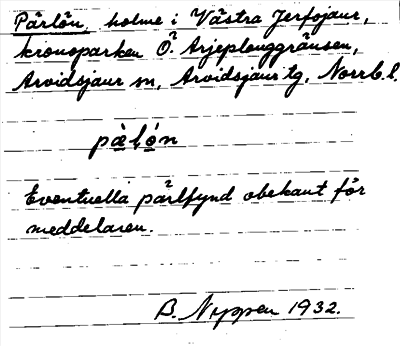 Pärlön, holme i Västra Jerfojaur,
kronoparken Ö. Arjeplouggränsen,
Arvidsjaur sn, Arvidsjaur tg, Norrb. l.
pä̀ló̱n
Eventuella pärlfynd obekant för
meddelaren.
B. Nyppen 1932.